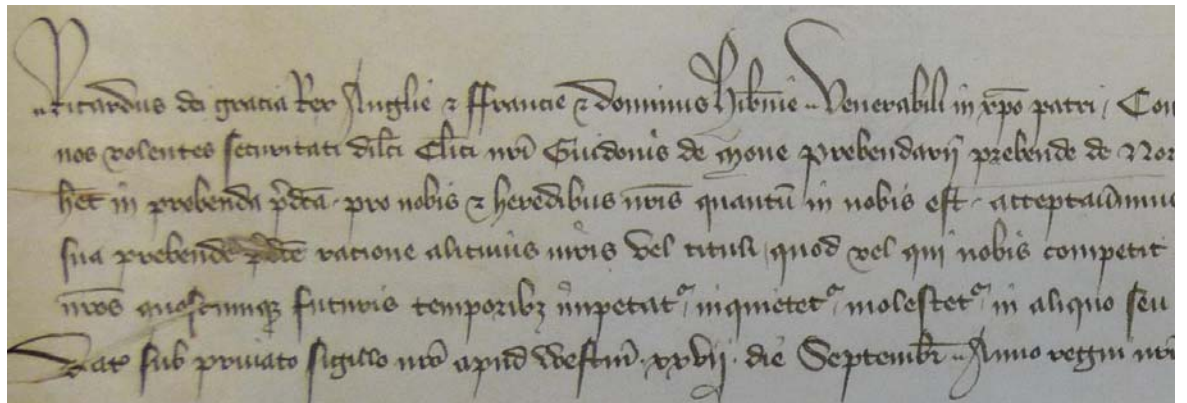 Ricardus dei gracia Rex Anglie & ffrancie & dominus Hibnie Venerabili in xpo patri Con
nos volentes securitati dilci Clici nri Guidonis de Mone Prebendarij prebende de Nor
het in prebenda pdca pro nobis & heredibus nris quantu in nobis est acceptauimus
sua prebende pdce racione alicuius iuris vel tituli quod vel qui nobis competit
nros quoscumq futuris temporibz impetat inquietet molestet in aliquo seu
Dat sub priuato sigillo nro apud Westm xxvij die Septembr Anno regni nri